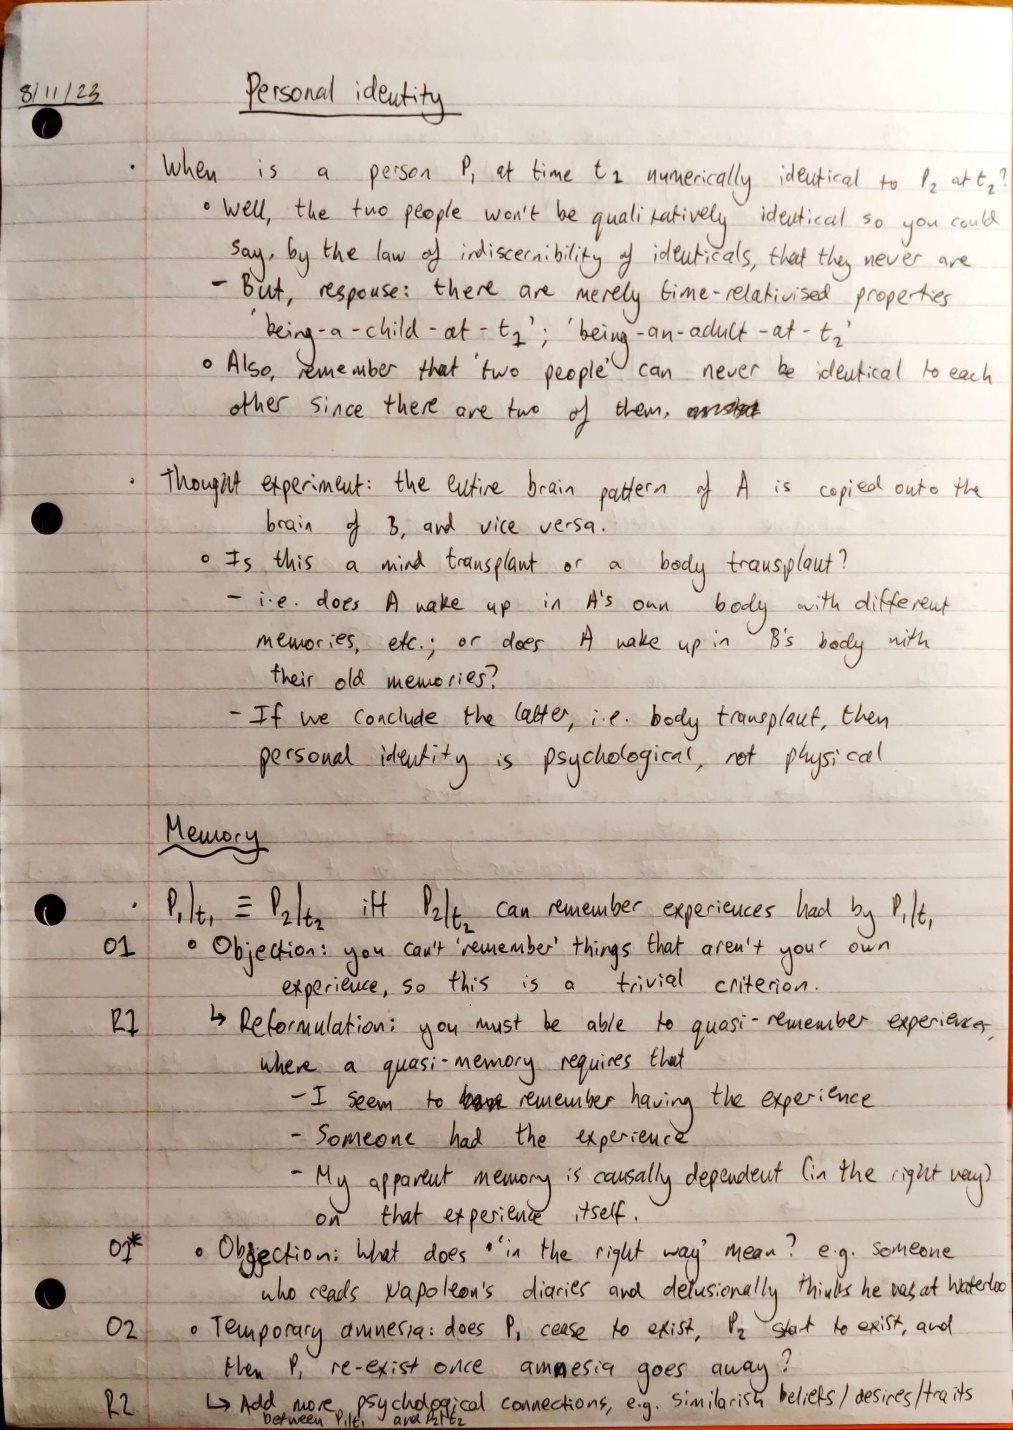 8/11/23 Personal identity
· When is a person P₁ at time t₁ numerically identical to P₂ at t₂?
∘ Well, the two people won't be qualitatively identical so you could
say, by the law of indiscernibility of identicals, that they never are
- But, response: there are merely time-relativised properties
'being-a-child-at-t₁'; 'being-an-adult-at-t₂'
∘ Also, remember that 'two people' can never be identical to each
other since there are two of them.
· Thought experiment: the entire brain pattern of A is copied onto the
brain of B, and vice versa.
∘ Is this a mind transplant or a body transplant?
- i.e. does A wake up in A's own body with different
memories, etc.; or does A wake up in B's body with
their old memories?
- If we conclude the latter, i.e. body transplant, then
personal identity is psychological, not physical
Memory
· P₁/t₁ ≡ P₂/t₂ iff P₂/t₂ can remember experiences had by P₁/t₁
O1 ∘ Objection: you can't 'remember' things that aren't your own
experience, so this is a trivial criterion.
R1 ↳ Reformulation: you must be able to quasi-remember experiences,
where a quasi-memory requires that
- I seem to remember having the experience
- Someone had the experience
- My apparent memory is causally dependent (in the right way)
on that experience itself.
O1* ∘ Objection: What does 'in the right way' mean? e.g. someone
who reads Napoleon's diaries and delusionally thinks he was at Waterloo
O2 ∘ Temporary amnesia: does P₁ cease to exist, P₂ start to exist, and
then P₁ re-exist once amnesia goes away?
R2 ↳ Add more psychological connections, e.g. similarish beliefs/desires/traits
between P₁/t₁ and P₂/t₂